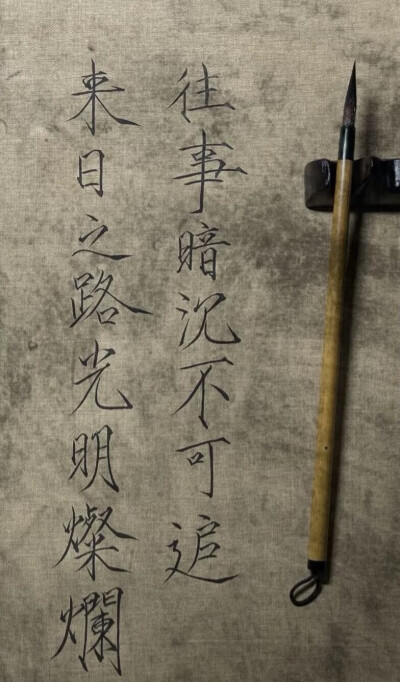 往事暗沉不可追
来日之路光明燦爛